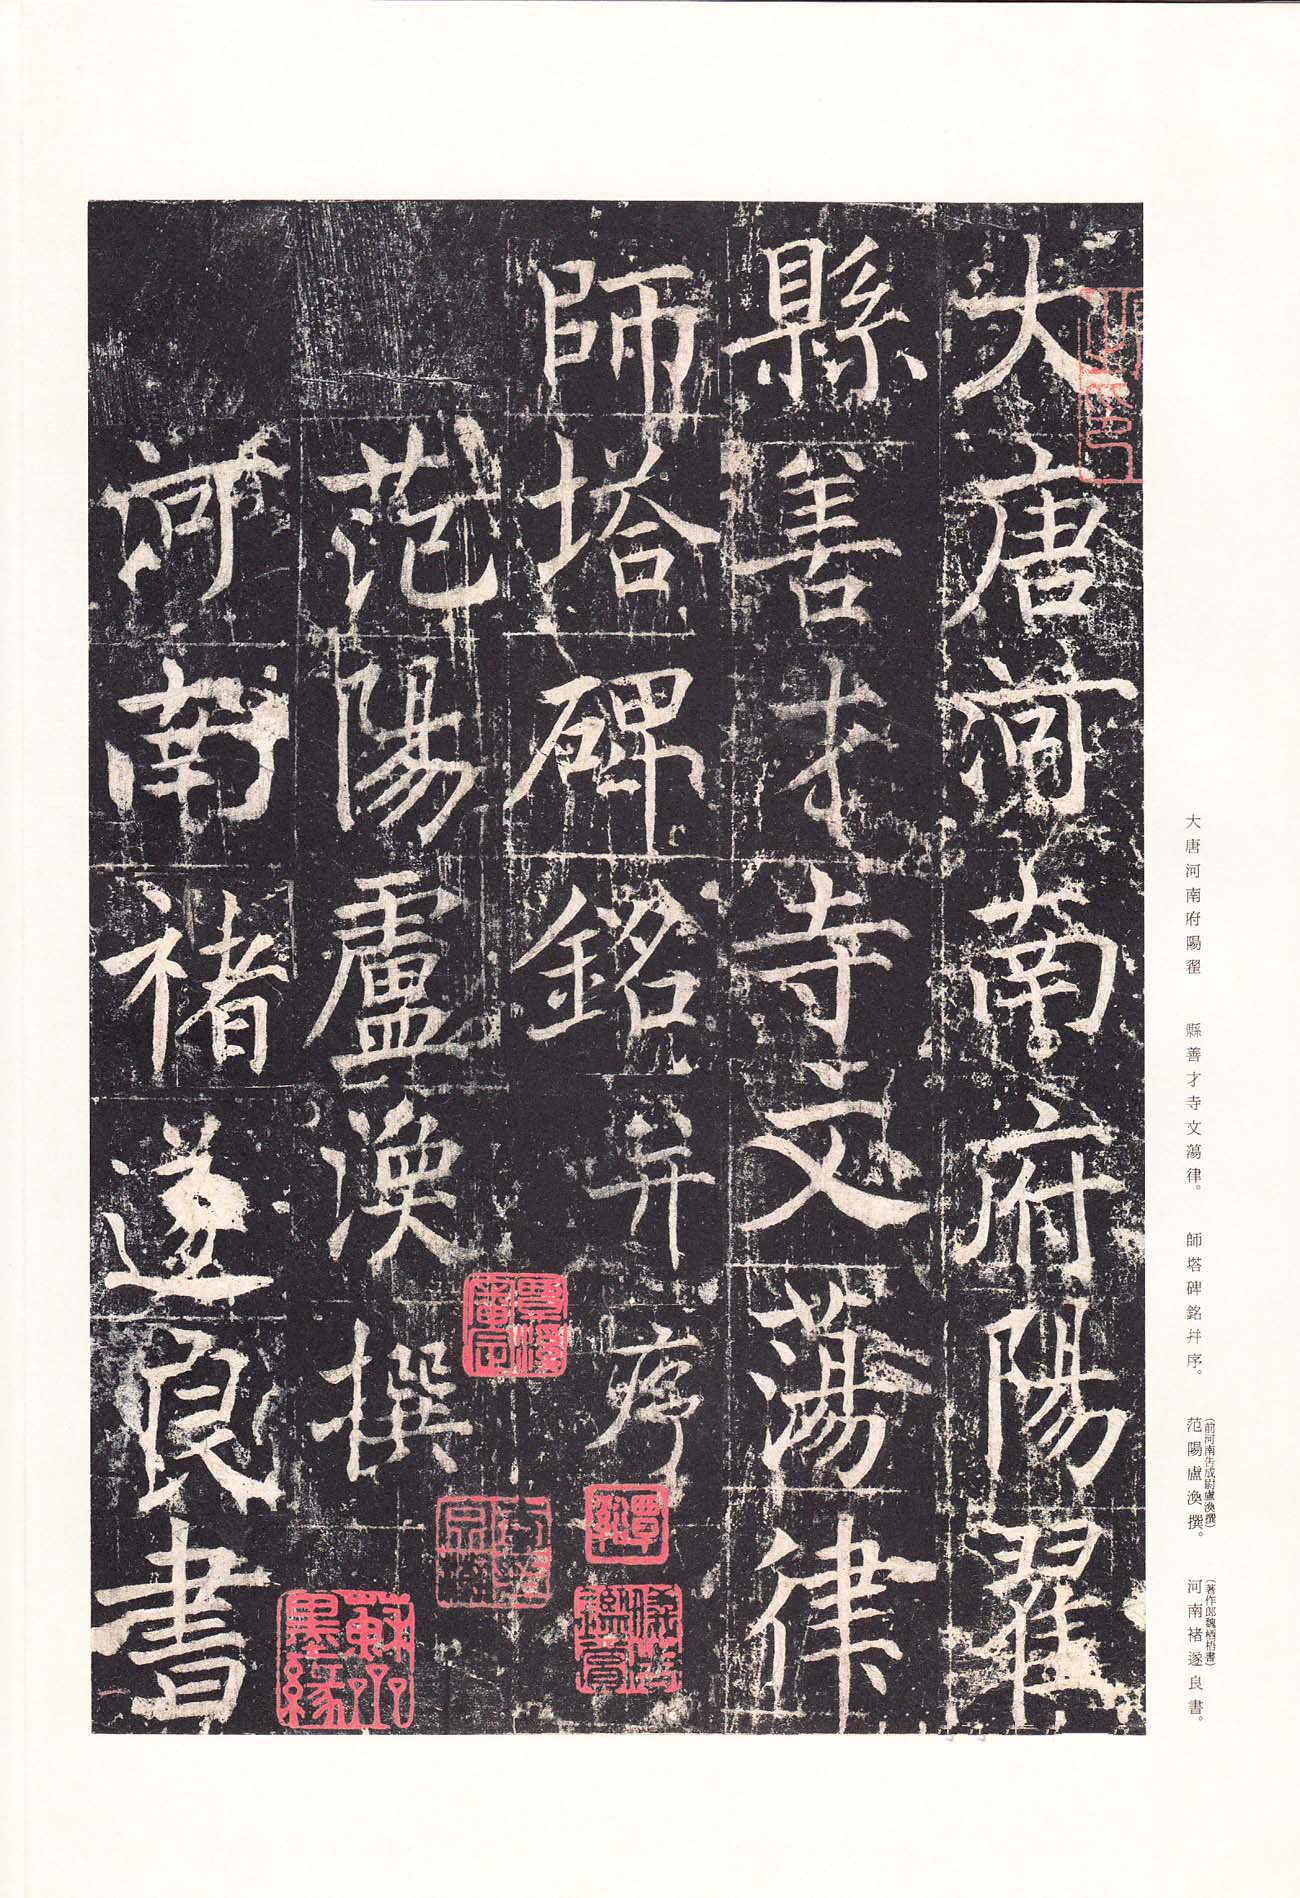 大唐河南府陽翟
縣善才寺文蕩律
師塔碑銘并序
范陽盧渙撰
河南褚遂良書
覃溪審定
覃谿
蘇齋墨緣
大唐河南府陽翟　縣善才寺文蕩律。　師塔碑銘并序。　范陽盧渙撰。　河南褚遂良書。
(前河南告成尉盧渙撰)
(著作郎魏栖梧書)